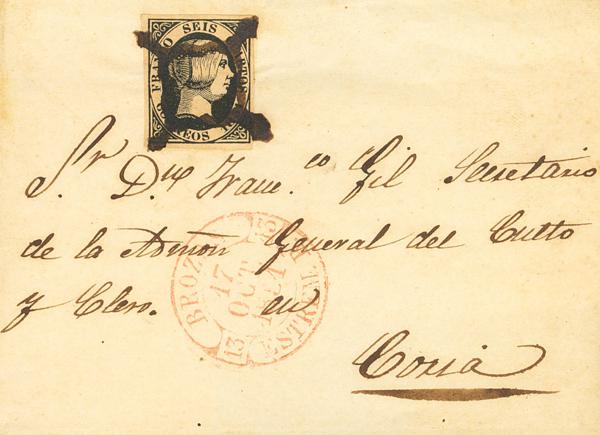 FRANCO SEIS CUARTOS
CORREOS
Sr. Dn. Franc.co Gil Secretario
de la Admon General del Culto
y Clero. en
Coria
BROZ
17
OCT
13